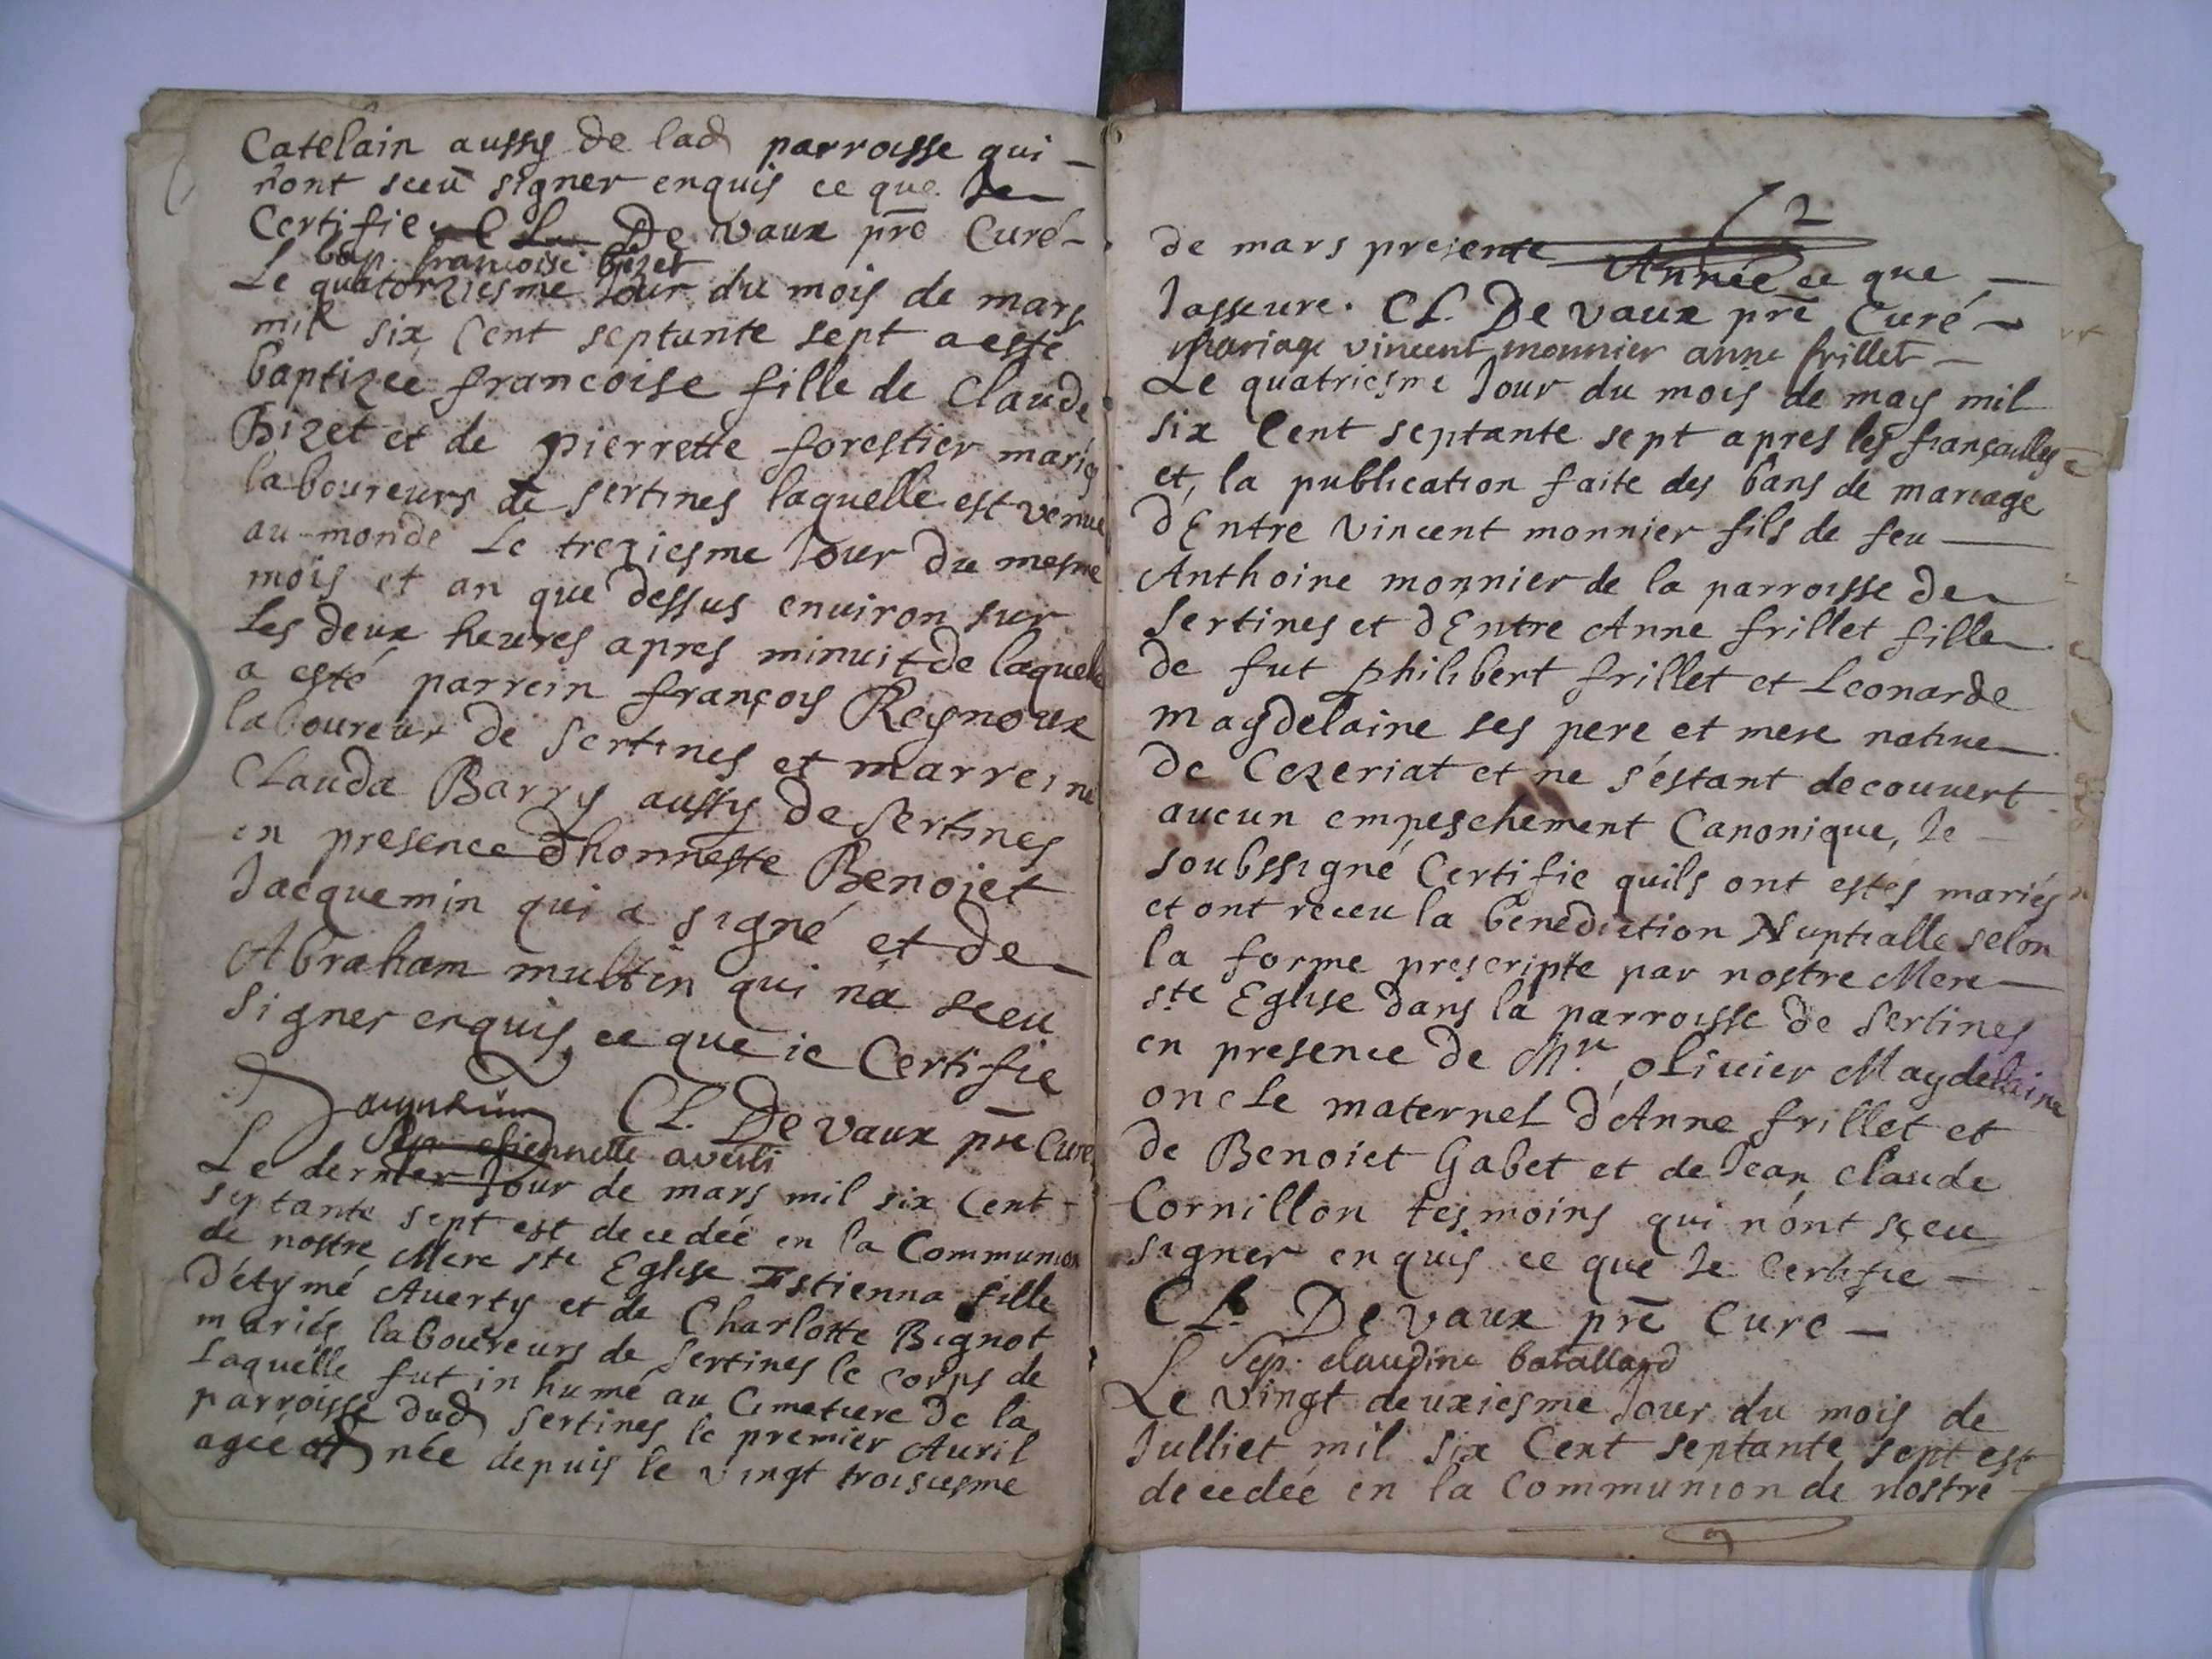 Catelain aussy de lad parroisse qui –
n'ont sceu signer enquis ce que Je
Certifie CL. De vaux pre Curé –
bap. francoise bizet
Le quatorziesme Jour du mois de mars
mil six Cent septante sept a esté
baptizee francoise fille de Claude
Bizet et de pierrette forestier mariés
laboureurs de sertines laquelle est venue
au monde Le treziesme Jour du mesme
mois et an que dessus enuiron sur
Les deux heures apres minuit de laquelle
a esté parrein françois Reynoux
laboureur de sertines et marreine
Clauda Barry aussy de sertines
en presence d'honneste Benoiet
Jacquemin qui a signé et de
Abraham multin qui n'a sceu
signer enquis, ce que ie Certifie
Jaquemin CL. De vaux pre Curé
Sep. estiennette averti
Le dernier Jour de mars mil six Cent
septante sept est decedéé en la Communion
de nostre Mere ste Eglise Estienna fille
d'étymé Auerty et de Charlotte Bignot
mariés laboureurs de sertines le corps de
Laquelle fut inhumé au Cimetiere de la
parroisse dud sertines le premier Auril
ageé née depuis le vingt troisiesme
2
de mars presente Année ce que –
Jasseure. CL. De vaux pre Curé –
Mariage vincent monnier anne frillet –
Le quatriesme Jour du mois de may mil
six Cent septante sept apres les françailles
et, la publication faite des bans de mariage
d'Entre vincent monnier fils de feu
Anthoine monnier de la parroisse de
sertines et d'Entre Anne frillet fille
de fut philibert frillet et Leonarde
magdelaine ses pere et mere natiue
de Cezeriat et ne s'estant decouuert
aucun empeschement Canonique, Je
soubssigné Certifie quils ont estés mariés
et ont receu la benediction Nuptialle selon
la forme prescripte par nostre Mere
ste Eglise dans la parroisse de sertines
en presence de Mre oliuier Magdelaine
oncle maternel d'Anne frillet et
de Benoiet Gabet et de Jean claude
Cornillon tesmoins qui n'ont sçeu
signer enquis ce que Je Certifie –
CL. De vaux pre Curé –
Sep. claudine batallard
Le vingt deuxiesme Jour du mois de
Julliet mil six Cent septante sept est
decedéé en la Communion de nostre